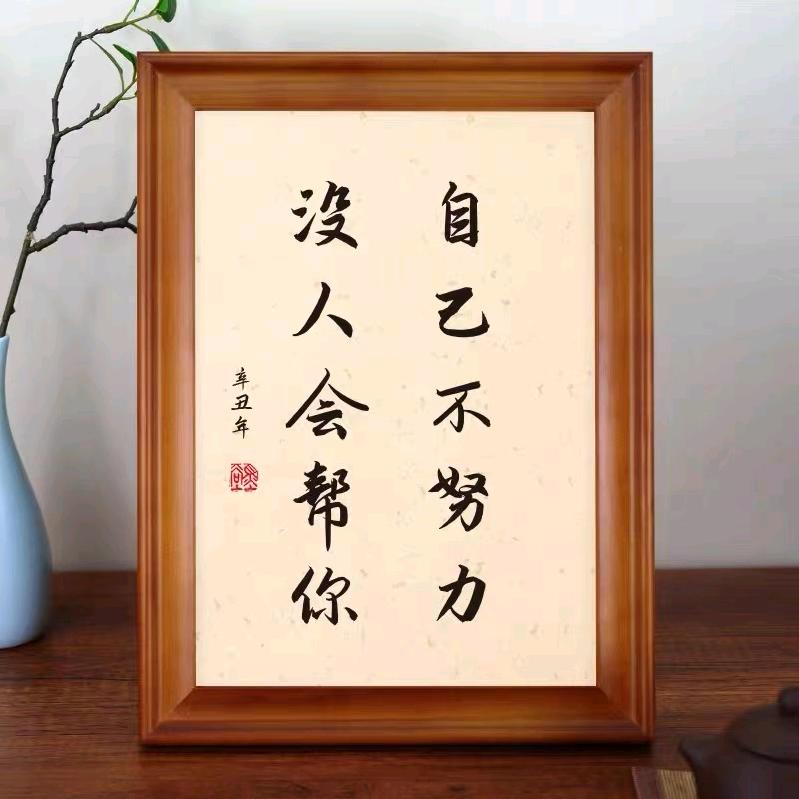 自己不努力
没人会帮你
辛丑年